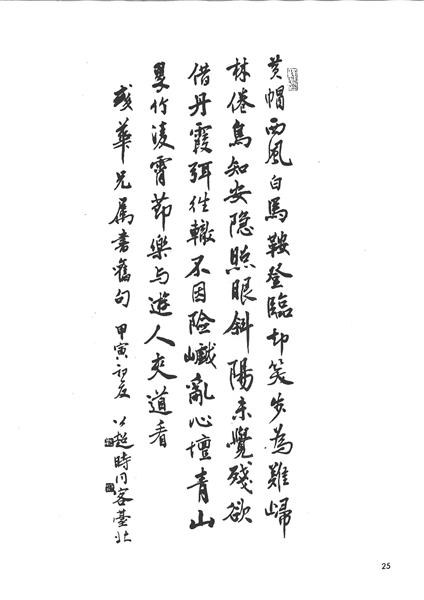 黃帽西風白馬鞍登臨却笑步為難歸
林倦鳥知安隐照眼斜陽未覺殘欲
借丹霞弭往轍不因險巇亂心壇青山
竹凌霄節樂与遊人夾道看
華兄属書舊句 甲寅初夏 公超時同客臺北
25